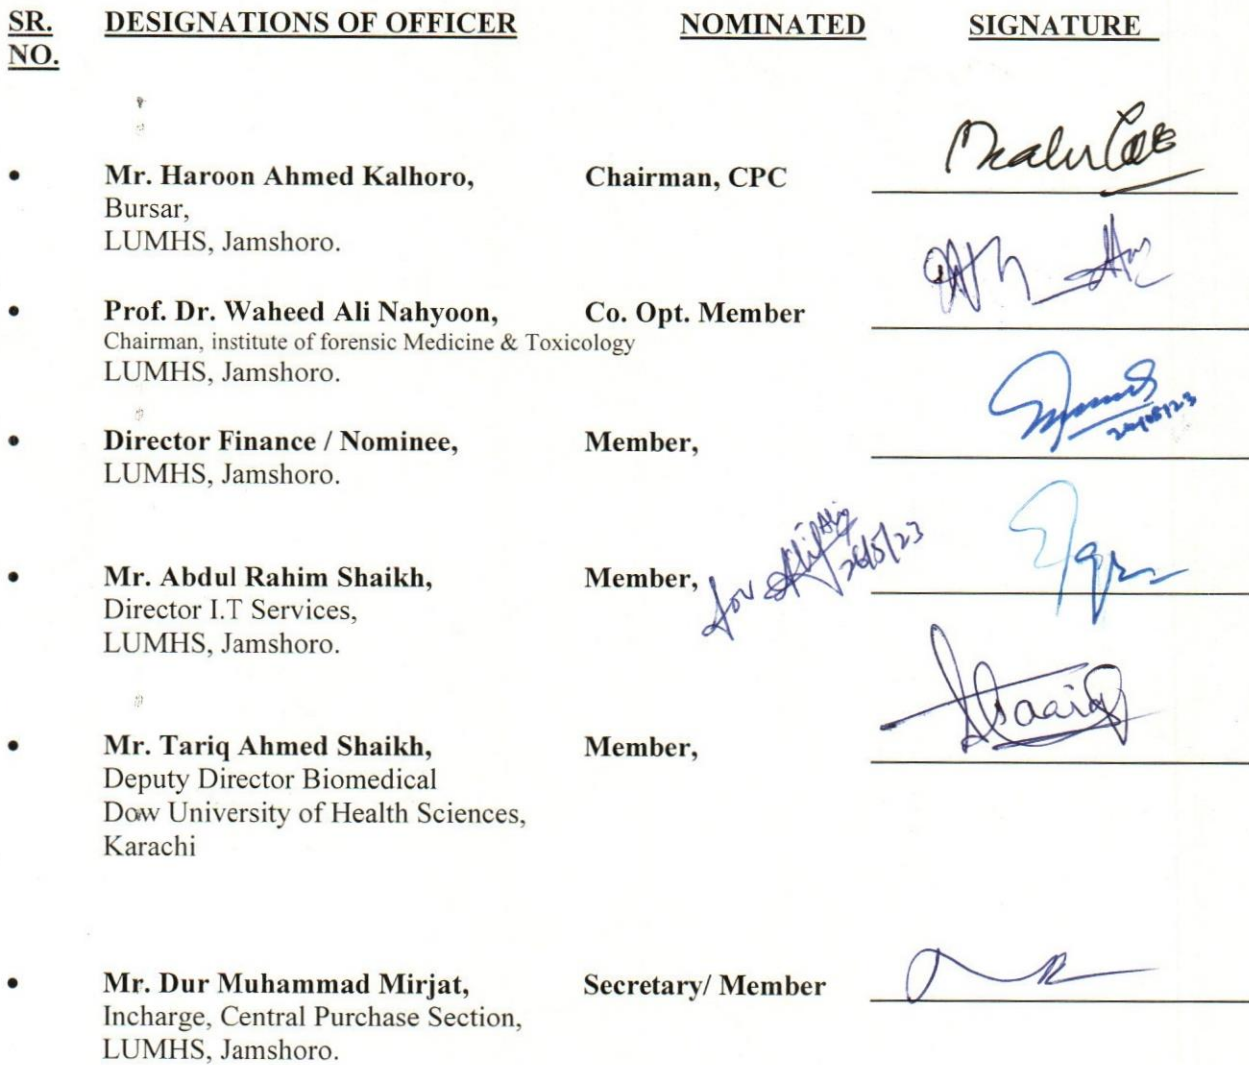 SR. DESIGNATIONS OF OFFICER NOMINATED SIGNATURE
NO.
• Mr. Haroon Ahmed Kalhoro, Chairman, CPC
Bursar,
LUMHS, Jamshoro.
• Prof. Dr. Waheed Ali Nahyoon, Co. Opt. Member
Chairman, institute of forensic Medicine & Toxicology
LUMHS, Jamshoro.
26/05/23
• Director Finance / Nominee, Member,
LUMHS, Jamshoro.
for 26/5/23
• Mr. Abdul Rahim Shaikh, Member,
Director I.T Services,
LUMHS, Jamshoro.
• Mr. Tariq Ahmed Shaikh, Member,
Deputy Director Biomedical
Dow University of Health Sciences,
Karachi
• Mr. Dur Muhammad Mirjat, Secretary/ Member
Incharge, Central Purchase Section,
LUMHS, Jamshoro.